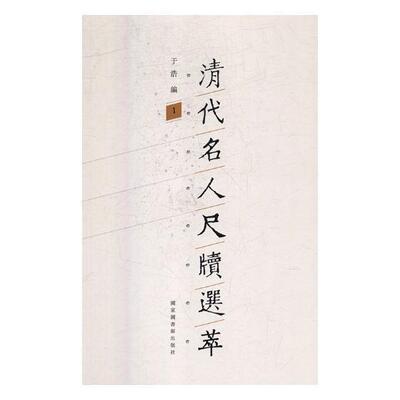 清代名人尺牘選萃
于浩編
1
國家圖書館出版社